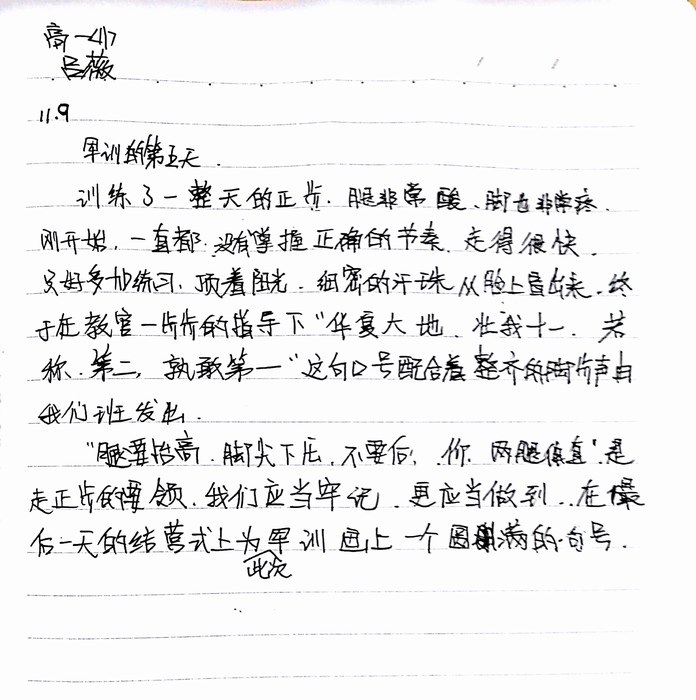 高一417
吕薇
11.9
军训的第五天.
训练了一整天的正步.腿非常酸.脚也非常疼.
刚开始,一直都没有掌握正确的节奏.走得很快.
只好多加练习.顶着阳光.细密的汗珠从脸上冒出来.终
于在教官一步步的指导下"华夏大地.壮我十一.若
称.第二,孰敢第一"这句口号配合着整齐的脚步声自
我们班发出.
"腿要抬高.脚尖下压,不要后仰.两腿绷直"是
走正步的要领.我们应当牢记.更应当做到.在最
后一天的结营式上为军训画上一个圆满的句号.
此次